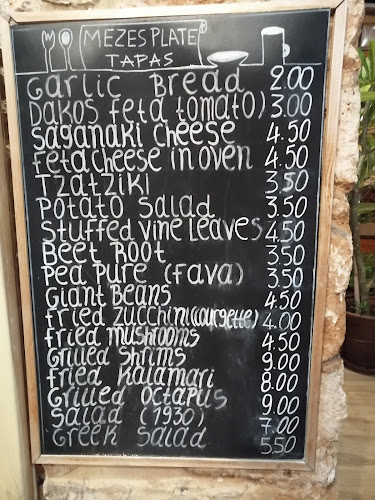 MEZES PLATE
TAPAS
Garlic Bread 2.00
Dakos feta tomato) 3.00
Saganaki cheese 4.50
feta cheese in oven 4.50
Tzatziki 3.50
Potato Salad 3.50
Stuffed vine Leaves 4.50
Beet Root 3.50
Pea Pure (fava) 3.50
Giant Beans 4.50
fried zucchini (courgette) 4.00
fried mushrooms 4.50
Grilled Shrims 9.00
fried Kalamari 8.00
Grilled Octapus 9.00
Salad (1930) 7.00
Greek Salad 5.50